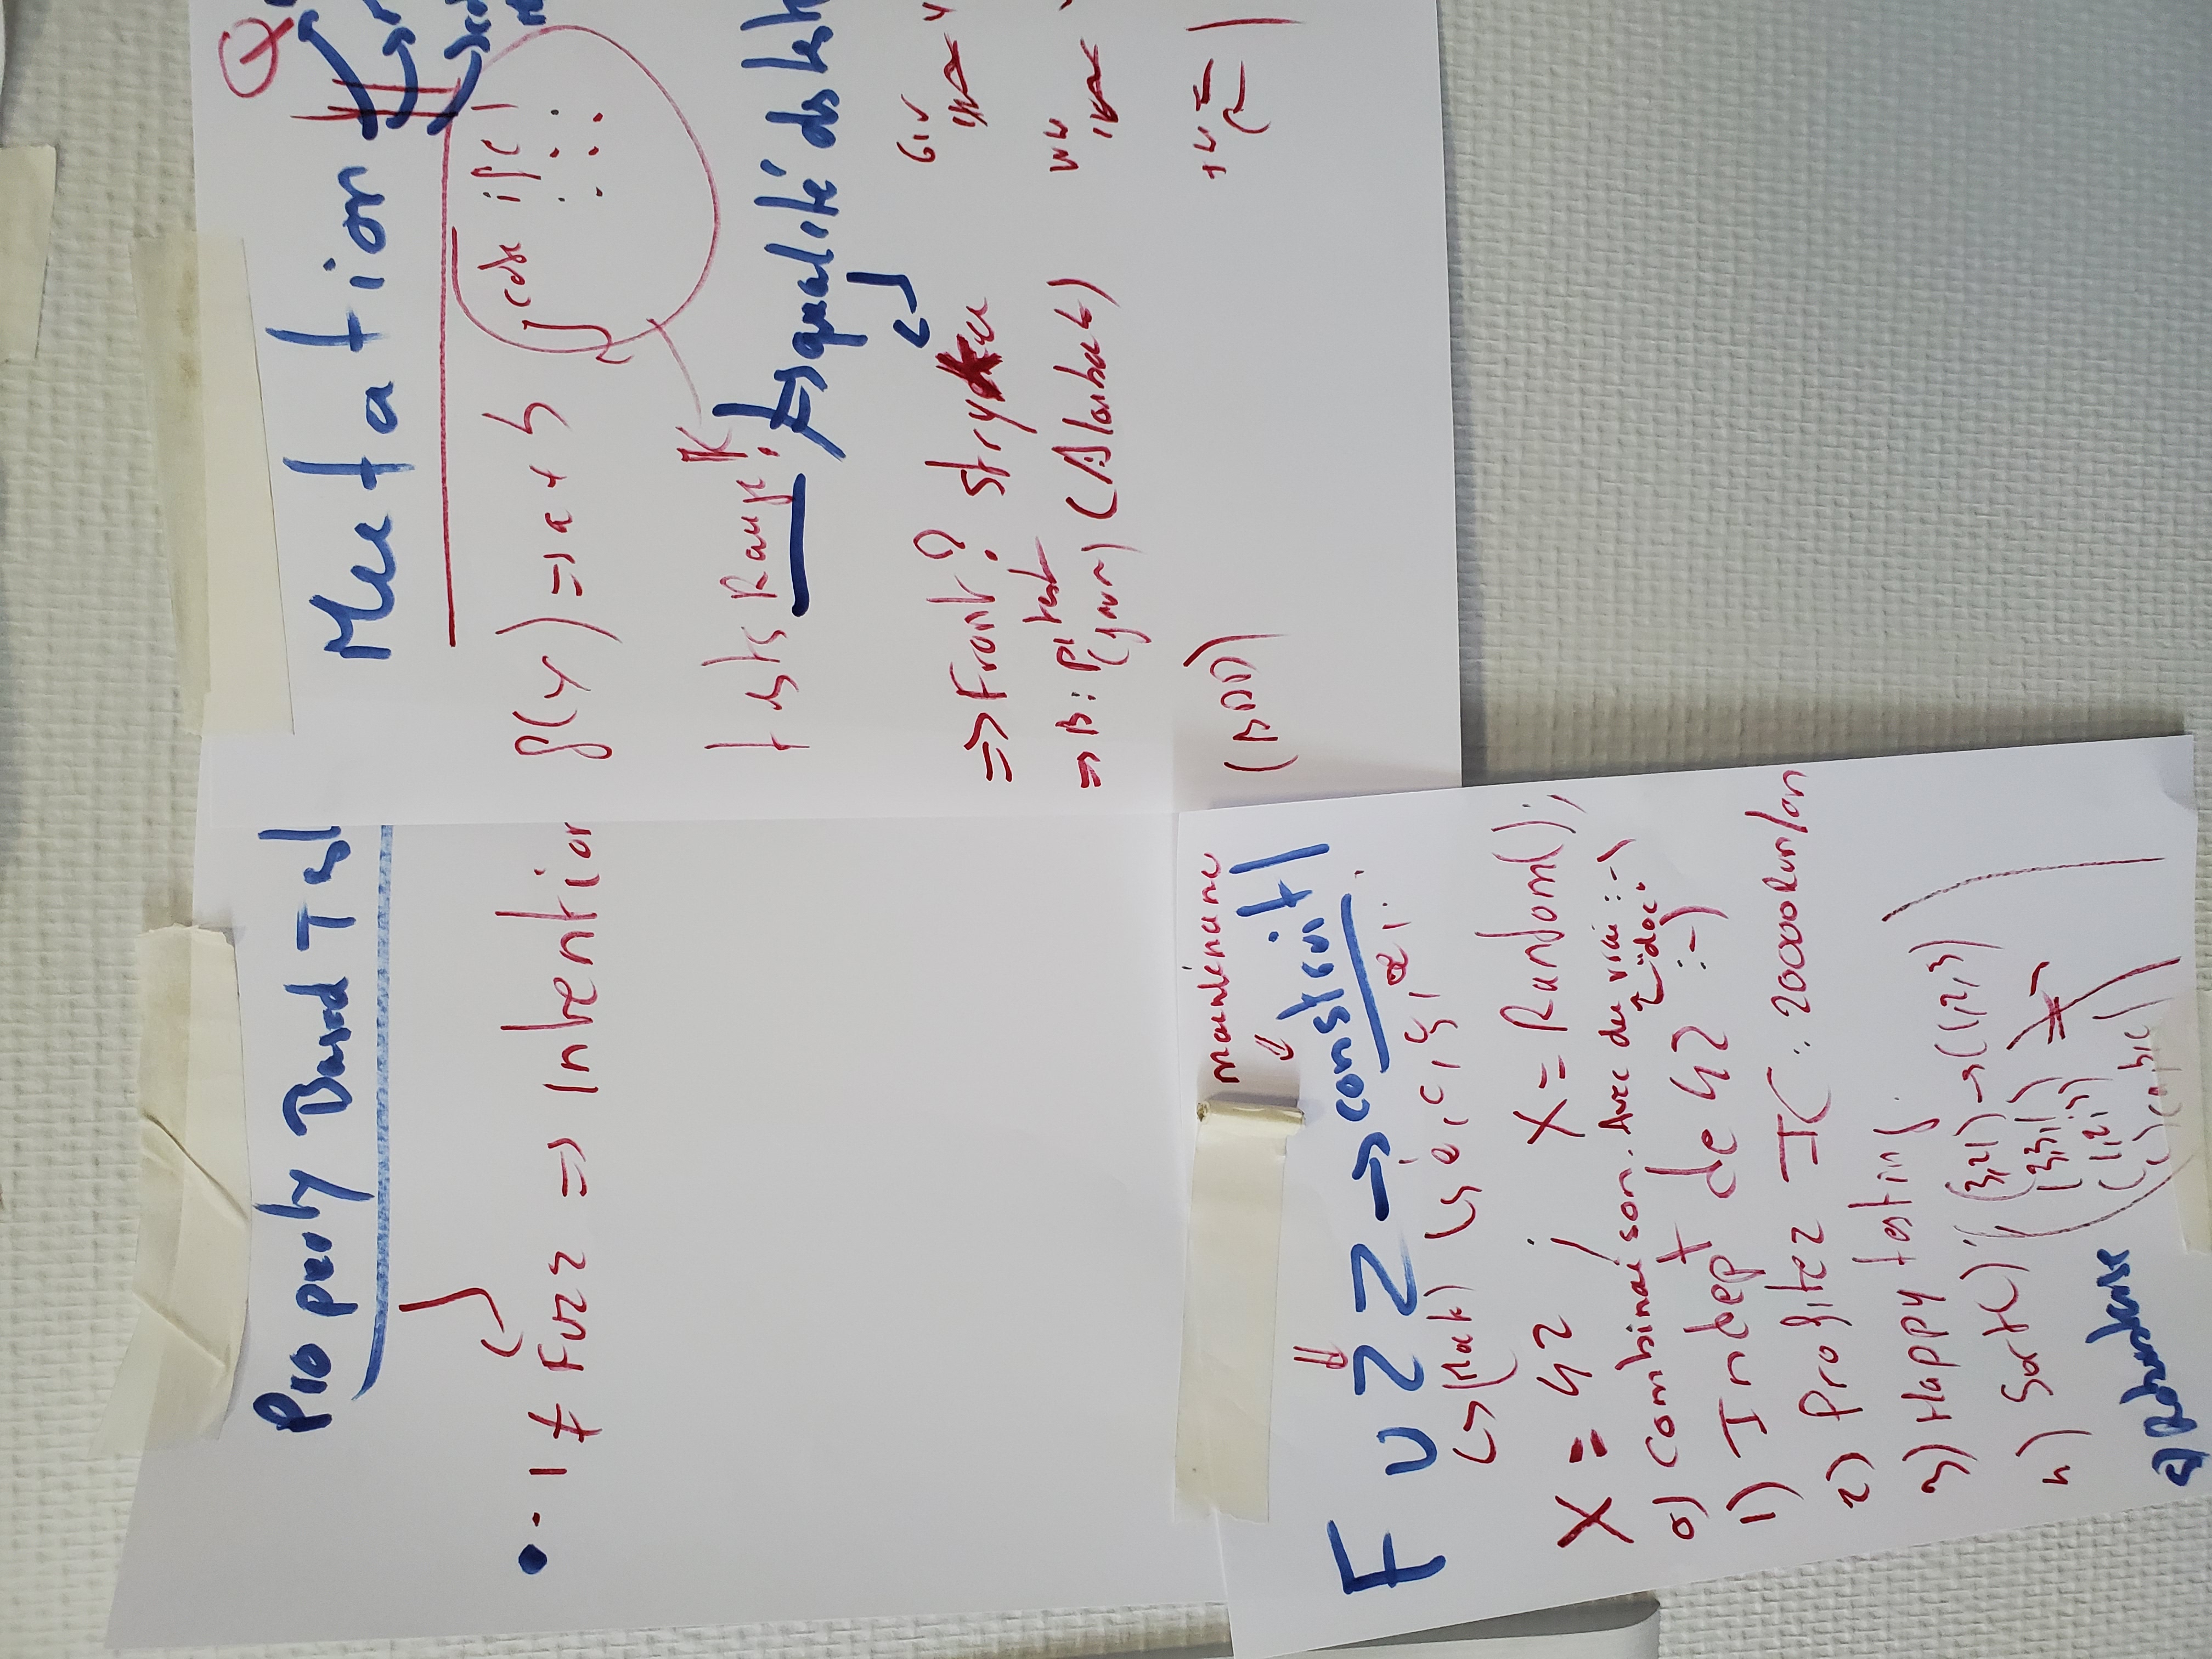 Property Based Test
≠ Fuzz => Intention
Mutation
Q
f(x) => a + b
code if( )
tests Range !
qualité des tests
=> Front ? stryker
=> B : pitest
(BDD)
maintenance
Fuzz -> construit !
(Mock) é, c, ç, œ, ..
X = 42 ; X = Random();
0) Combinaison. Avec du vrai :-)
"doc"
1) Indept de 42 :-)
2) Profitez IC : 20000 Run/an
3) Happy testing.
4) Sort() : (3,2,1) -> (1,2,3)
(3,3,1)
(1,2,3)
( ) (a,b,c)
5) Robustesse